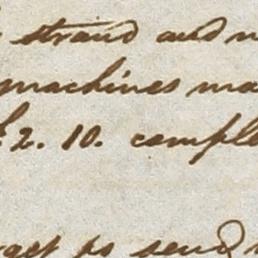 strand and
machines ma
£2. 10. comple
to send